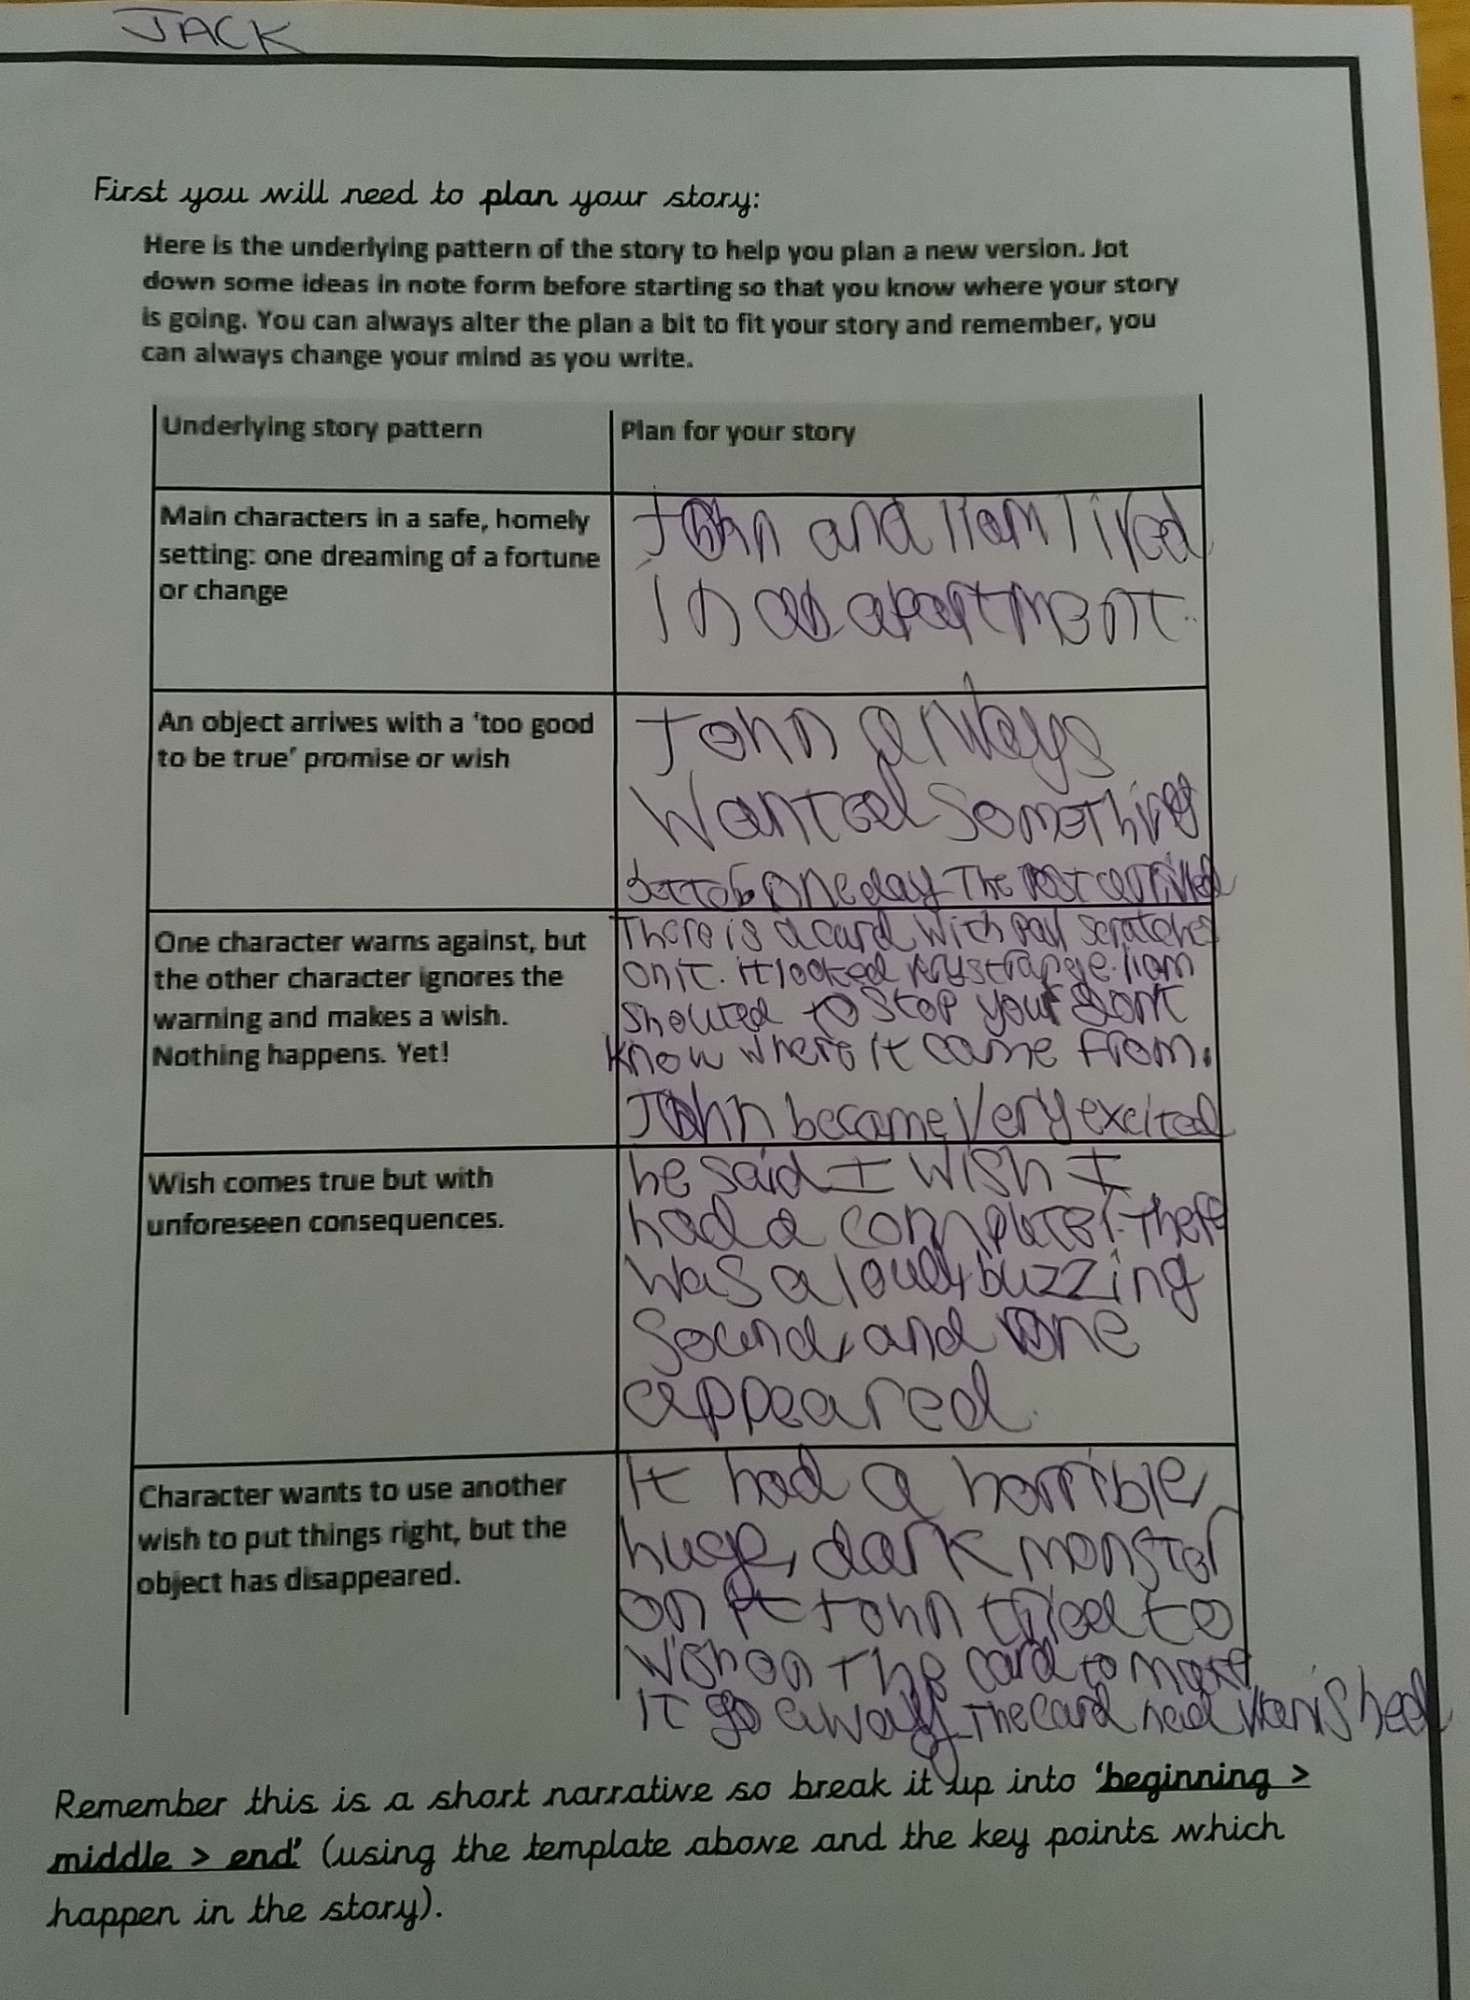 JACK
First you will need to plan your story:
Here is the underlying pattern of the story to help you plan a new version. Jot
down some ideas in note form before starting so that you know where your story
is going. You can always alter the plan a bit to fit your story and remember, you
can always change your mind as you write.
Underlying story pattern
Plan for your story
Main characters in a safe, homely
setting: one dreaming of a fortune
or change
John and liam lived
in an apartment.
An object arrives with a 'too good
to be true' promise or wish
John always
wanted something
better one day The Post arrived
One character warns against, but
the other character ignores the
warning and makes a wish.
Nothing happens. Yet!
There is a card with scratches
on it. it looked very strange. liam
shouted to stop you dont
know where it came from.
John became very excited
Wish comes true but with
unforeseen consequences.
he said I wish I
had a computer. There
was a loud, buzzing
sound, and one
appeared.
Character wants to use another
wish to put things right, but the
object has disappeared.
It had a horrible,
huge, dark monster
on it John tried to
wish on the card to make
it go away. The card had vanished
Remember this is a short narrative so break it up into 'beginning >
middle > end' (using the template above and the key points which
happen in the story).